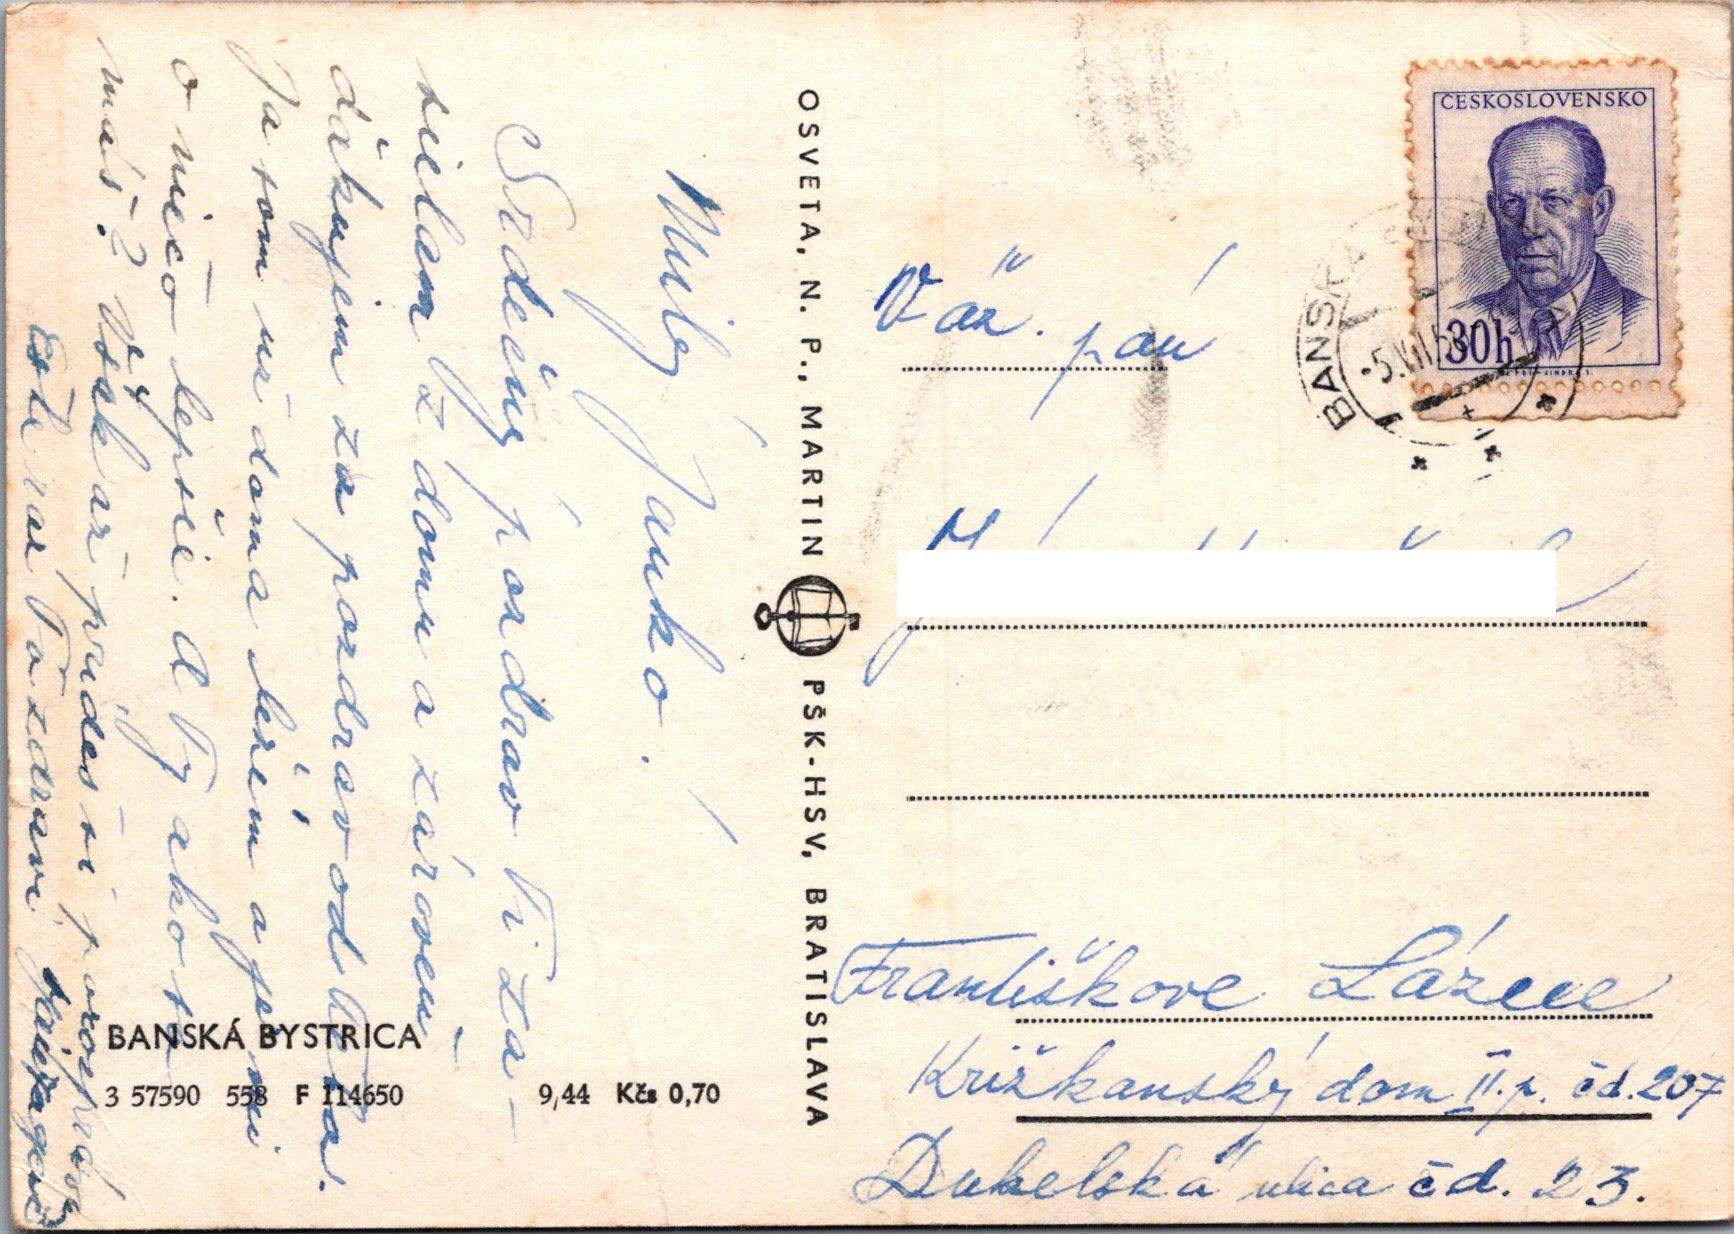 Milý Janko!
Srdečný pozdrav Ti za-
sielam z domu a zároveň
ďakujem za pozdrav od Teba.
Ja som už doma a je mi
o niečo lepšie. A Ty ako sa
máš? Však až prídeš si porozprávame
Ešte raz Ťa zdraví
OSVETA, N. P., MARTIN
PŠK-HSV, BRATISLAVA
BANSKÁ BYSTRICA
3 57590 558 F 114650
9,44 Kčs 0,70
ČESKOSLOVENSKO
30h
BANSKÁ
-5.VII
Váž. pán
Františkove Lázne
Križkanský dom II.p. čd.207
Dukelská ulica čd. 23.